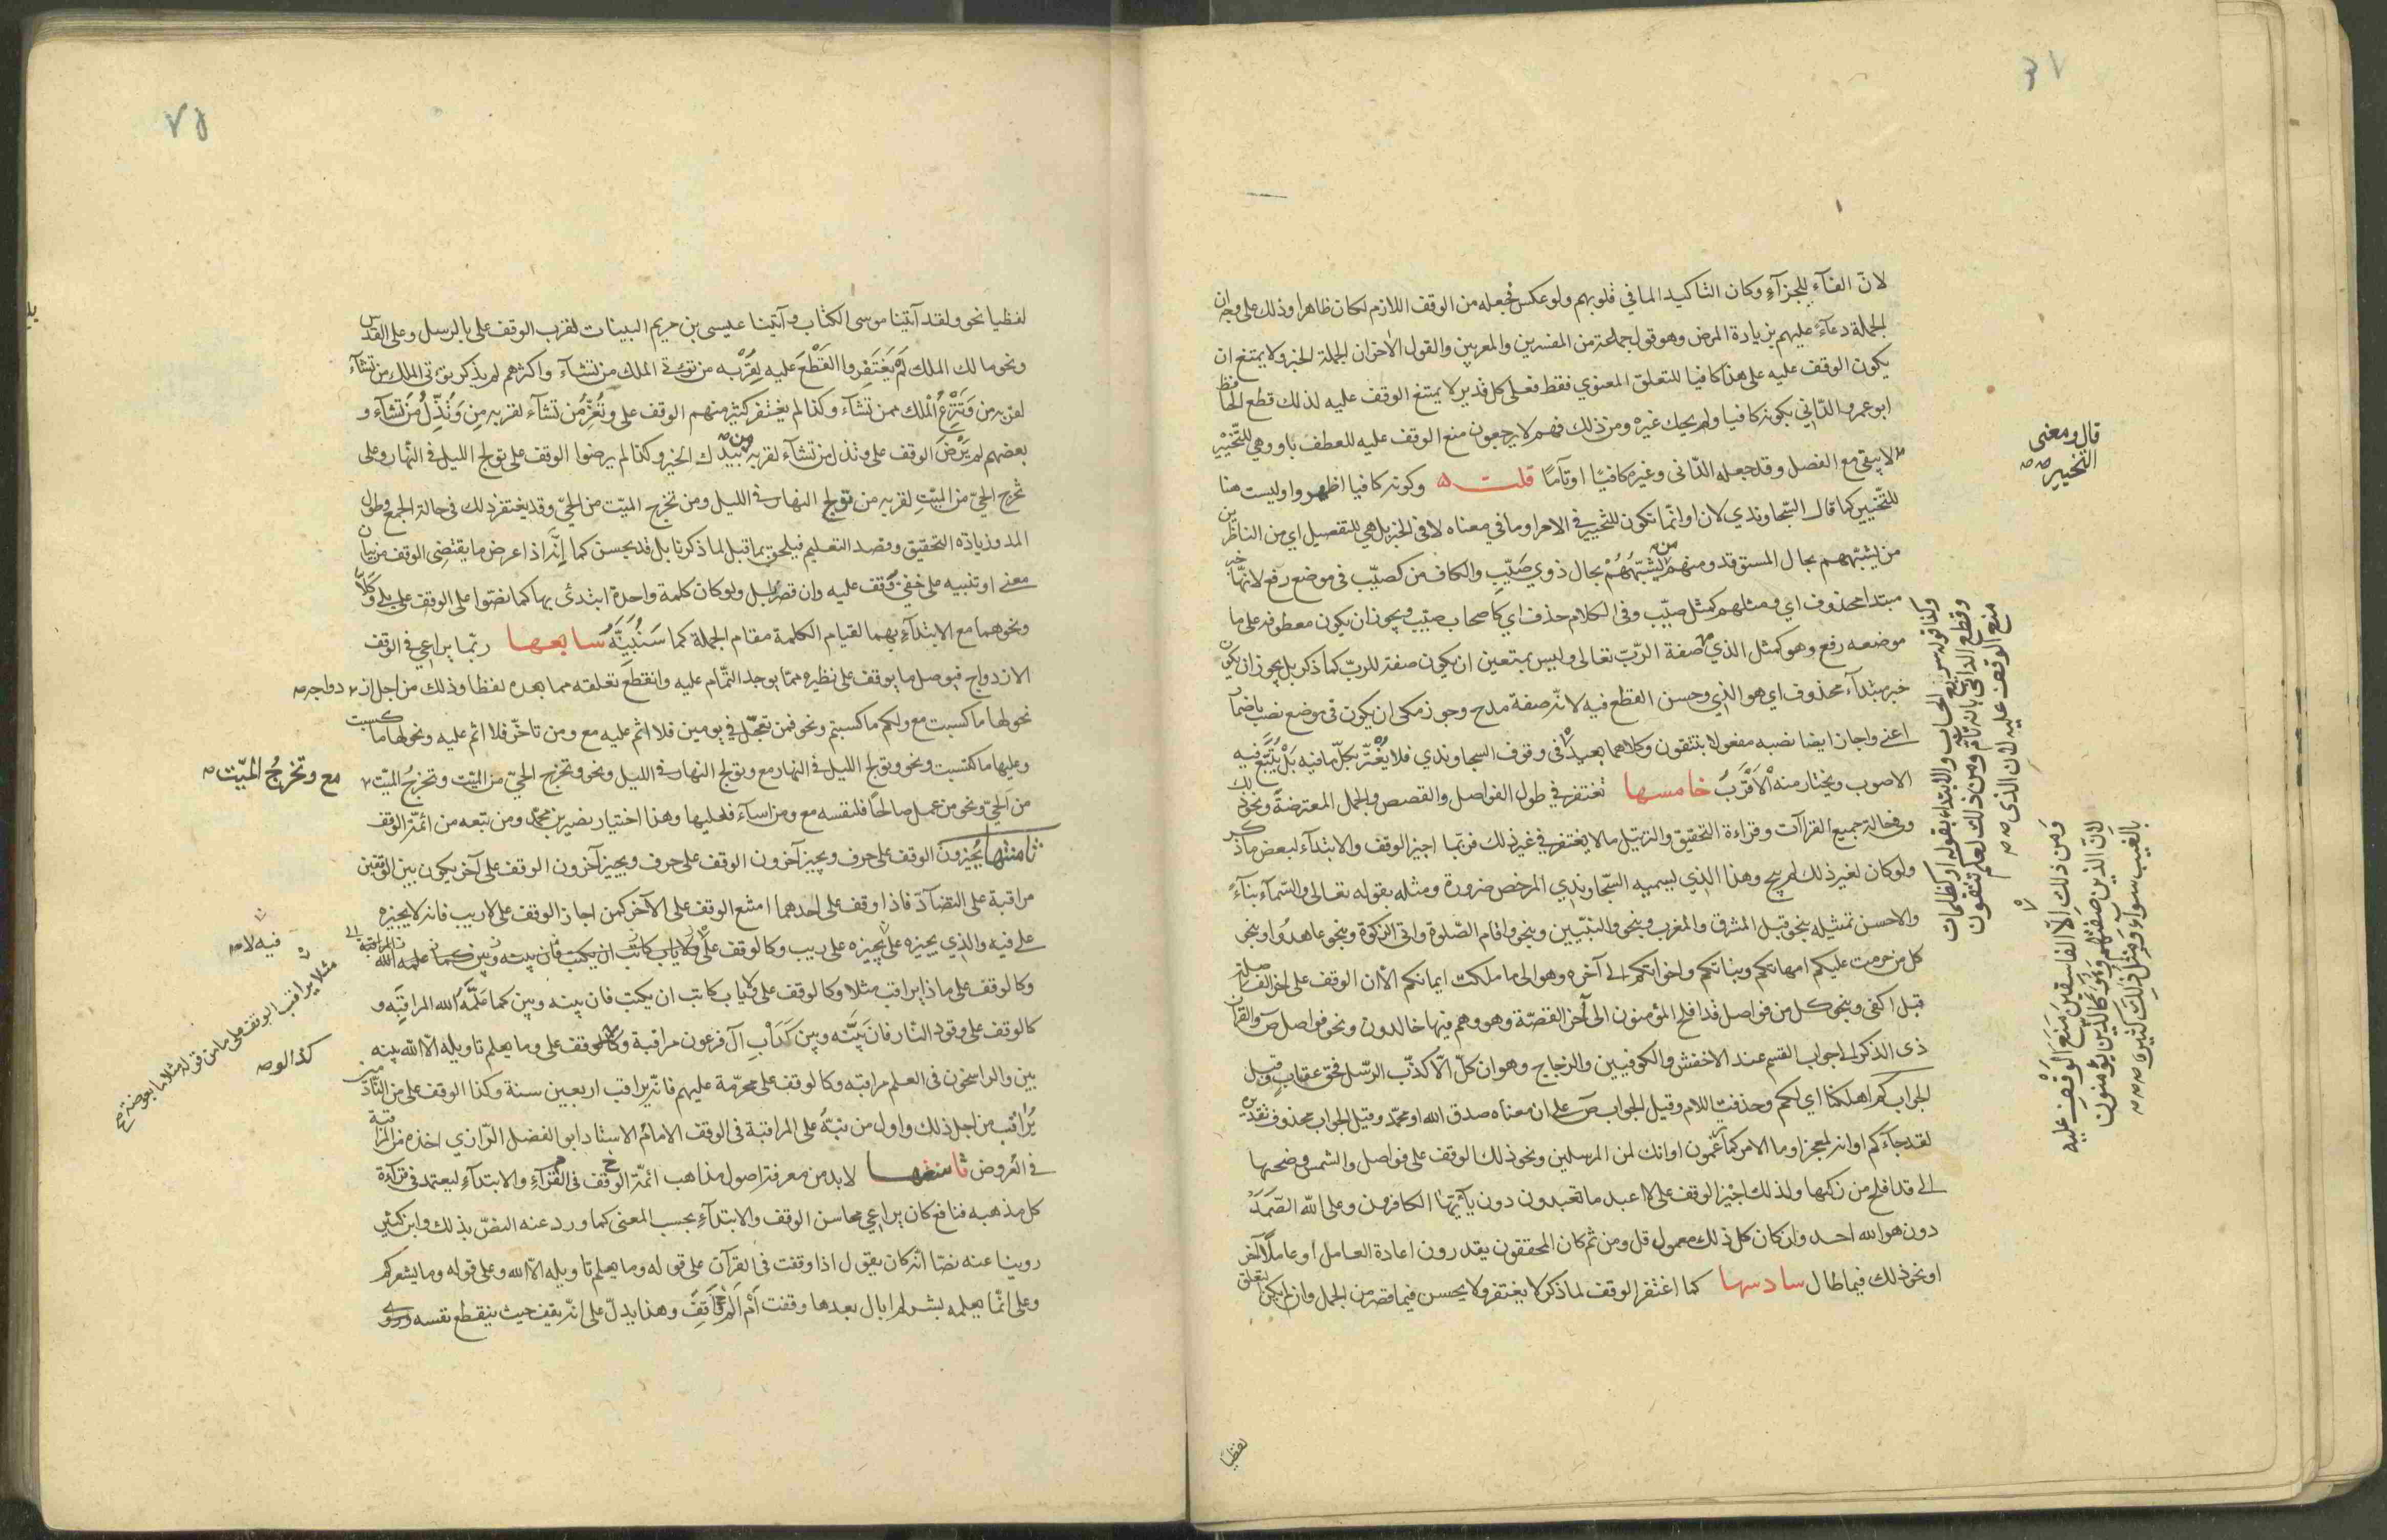 لانّ الفآء للجزآء وكان التاكيد لما في قلوبهم ولو عكس فجعله من الوقف اللازم لكان ظاهرا وذلك على وجه ان
الجملة دعآء عليهم بزيادة المرض وهو قول جماعة من المفسرين والمعربين والقول الاخر ان الجملة الخبر ولا يمتنع ان
يكون الوقف عليه على هذا كافيا للتعلق المعنوي فقط فعلى كل تقدير لا يمتنع الوقف عليه لذلك قطع الحافظ
ابو عمرو الدّاني بكونه كافيا ولم يحك غيره ومن ذلك فهم لا يرجعون منع الوقف عليه للعطف باو وهي للتّخيير
لا يبقى مع الفصل وقد جعله الدّاني وغيره كافيًا او تآمًا قلت وكونه كافيا اظهر واو ليست هنا
للتّخيير كما قال السّجاوندي لان او انّما تكون للتخيير في الامر او ما في معناه لا في الخبر بل هي للتفصيل اي من الناظرين
من يشبّههم بحال المستوقد ومنهم من يُشبّهُهُمْ بحال ذوي صَيِّبٍ والكاف من كصيّب في موضع رفع لانّها خبر
مبتدا محذوف اي ومثلهم كمثل صيّب وفي الكلام حذف اي كاصحاب صيّب ويجوز ان يكون معطوفة على ما
موضعه رفع وهو كمثل الذي صفة الرّبّ تعالى وليس بمتعين ان يكون صفة للربّ كما ذكر بل يجوز ان يكون
خبر مبتدآء محذوف اي هو الذي وحسن القطع فيه لانّه صفة مدح وجوز مكي ان يكون في موضع نصب باضمار
اعني واجاز ايضا نصبه مفعولا بتتقون وكلاهما بعيد في وقوف السجاوندي فلا يُغْترّ بكلّ ما فيه بَلْ يُتَّبَعُ فيه
الاصوب ويختار منه الْاَقْرَبُ خامسها تغتفر في طول الفواصل والقصص والجمل المعترضة ونحو ذلك
وفي حالة جميع القرآات وقراءة التحقيق والترتيل ما لا يغتفر في غير ذلك فربّما اجيز الوقف والابتدآء لبعض ما ذكر
ولو كان لغير ذلك لم يبح وهذا الذي يسميه السّجاوندي المرخص ضرورة ومثله بقوله تعالى والسّمآء بنآءً
والاحسن تمثيله بنحو قبل المشرق والمغرب وبنحو والنبّيين وبنحو واقام الصّلوة واتى الزكوة وبنحو عاهدُوا ونحو
كل من حرمت عليكم امهاتكم وبناتكم واخواتكم الى آخره وهو الى ما ملكت ايمانكم الّا ان الوقف على اخر الفاصلة
قبل اكفى وبنحو كل من فواصل قد افلح المؤمنون الى آخر القصّة وهو وهم فيها خالدون ونحو فواصل ص والقرآن
ذى الذكر الى جواب القسم عند الاخفش والكوفيين والزجاج وهو ان كلّ الّا كذّب الرّسل فحق عقاب وقيل
الجواب كم اهلكنا اي لكم وحذفت اللام وقيل الجواب ص على ان معناه صدق الله او محمّد وقيل الجواب محذوف تقديره
لقد جآءكم او انه لمعجز او ما الامر كما تزعمون او انك لمن المرسلين ونحو ذلك الوقف على فواصل والشمس وضحيها
الى قد افلح من زكيها ولذلك اجيْز الوقف على لا اعبد ما تعبدون دون يآ ايّها الكافرون وعلى اللّه الصّمدُ
دون هو الله احد وان كان كل ذلك معمول قل ومن ثم كان المحققون يقدرون اعادة العامل او عاملًا آخر
او نحو ذلك فيما طال سادسها كما اغتفر الوقف لما ذكر لا يغتفر ولا يحسن فيما قصر من الجمل وان لم يكن التعلق
قال ومعنى
التخيير
ولنا قوله سريع الحساب والابتداء بقوله او كظلمات
وقطع الدانى بانه تآم ومن ذلك لعلكم تتقون
منع الوقف عليه لان الذي
ومن ذلك الّا الفاسقين مَنَعَ الوقف عليه
لانّ الذين صفتهم وكالذين يؤمنون
بالغيب سواء ومثل ذلك كثير
لفظيا
لفظيا نحو ولقد آتينا موسى الكتاب وآتينا عيسى بن مريم البينات لقرب الوقف على بالرسل وعلى القدس
ونحو مالك الملك لَمْ يَغتَفِروا القَطْعَ عليه لِقُرْبه من تؤتى الملك من تشآء واكثرهم لم يذكر تؤتى الملك من تشآء
لقربه من وَتَنْزِعُ الْملك ممن تشآء وكذا لم يغتفر كثير منهم الوقف على وتُعِزُّ من تشآء لقربه من وَتُذِلُّ مَنْ تشآء و
بعضهم لم يَرْضَ الوقف على وتذل من تشآء لقربه من بيدك الخير وكذا لم يرضوا الوقف على تولج الليل في النهار وعلى
تخرج الحيّ من الميّتِ لقربه من تولج النهار في الليل ومن تخرج الميّت من الحيّ وقد يغتفر ذلك في حالة الجمع وطول
المد وزيادة التحقيق وقصد التعليم فيلحق بما قبل لما ذكرنا بل قد يحسن كما انّه اذا عرض ما يقتضى الوقف من بيان
معنى او تنبيه على خفيّ وُقف عليه وان قصر بل ولو كان كلمة واحدة ابتدئ بها كما نصّوا على الوقف على بلى وَكَلَّا
ونحوهما مع الابتدآء بهما لقيام الكلمة مقام الجملة كما سَنُبَيِّنُهُ سابعها ربّما يراعي في الوقف
الازدواج فيوصل ما يوقف على نظيره ممّا يوجد التّمام عليه وانقطع تعلقه مما بعده لفظا وذلك من اجل ازدواجه
نحو لها ما كسبت مع ولكم ما كسبتم ونحو فمن تعجّل في يومين فلا اثم عليه مع ومن تاخّر فلا اثم عليه ونحو لها ما كسبت
وعليها ما اكتسبت ونحو وتولج الليل في النهار مع وتولج النهار في الليل ونحو وتخرج الحيّ من الميّت وتخرجُ الميّت
من الحيّ ونحو من عمل صالحًا فلنفسه مع ومن اسآء فعليها وهذا اختيار نصير بن محمّد ومن تبعه من ائمّة الوقف
ثامنتها يُجيزون الوقف على حرف ويجيز آخرون الوقف على حرف ويجيز آخرون الوقف على آخر يكون بين الوقفين
مراقبة على التضادّ فاذا وقف على احدهما امتنع الوقف على الآخر كمن اجاز الوقف على لا ريب فانه لا يجيزه
على فيه والذي يجيزه على يجيزه على ريب وكالوقف على ولا ياب كاتب ان يكتب فان بينه وبين كما علمه الله المراقبة
وكالوقف على ماذا يراقب مثلا وكالوقف على ولا ياب كاتب ان يكتب فان بينه وبين كما عَلَّمَهُ الله المراقبة و
كالوقف على وقود النار فان بَيْنَه وبين كَدَأْبِ آل فرعون مراقبة وكالوقف على وما يعلم تاويله الّا الله بينه
بين والراسخون في العلم مراقبه وكالوقف على محرّمة عليهم فانّه يراقب اربعين سنة وكذا الوقف على من النّادمين
يُرَاقب من اجل ذلك واول من نبّهُ على المراقبة في الوقف الامامُ الاستاد ابو الفضل الرّازي اخذه من المراقبة
في العُروض ثامنها لا بد من معرفة اصول مذاهب ائمّة الوقف في القرّآء والابتدآء ليعتمد في قرآءة
كل مذهبه فنافع كان يراعي محاسن الوقف والابتدآء بحسب المعنى كما ورد عنه النصّ بذلك وابن كثير
روينا عنه نصّا انّه كان يقول اذا وقفت في القرآن على قوله وما يعلم تاويله الّا الله وعلى قوله وما يشعركم
وعلى انّما يعلمه بشر لم ابال بعدها وقفت اَمْ لَمْ اَقِفْ وهذا يدلّ على انّه يقف حيث ينقطع نفسه وروى
مع وتخرجُ الميّت
فيه لا
مثلا يراقب الوقف على ما من قوله مثلا ما بعوضة
كذا لو